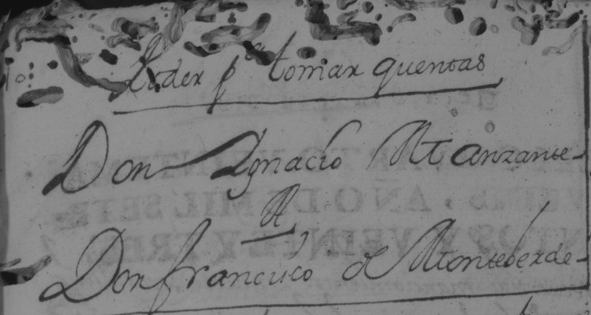 Poder pa tomar quentas
Don Ignacio Manzante
A
Don francisco de Monteberde